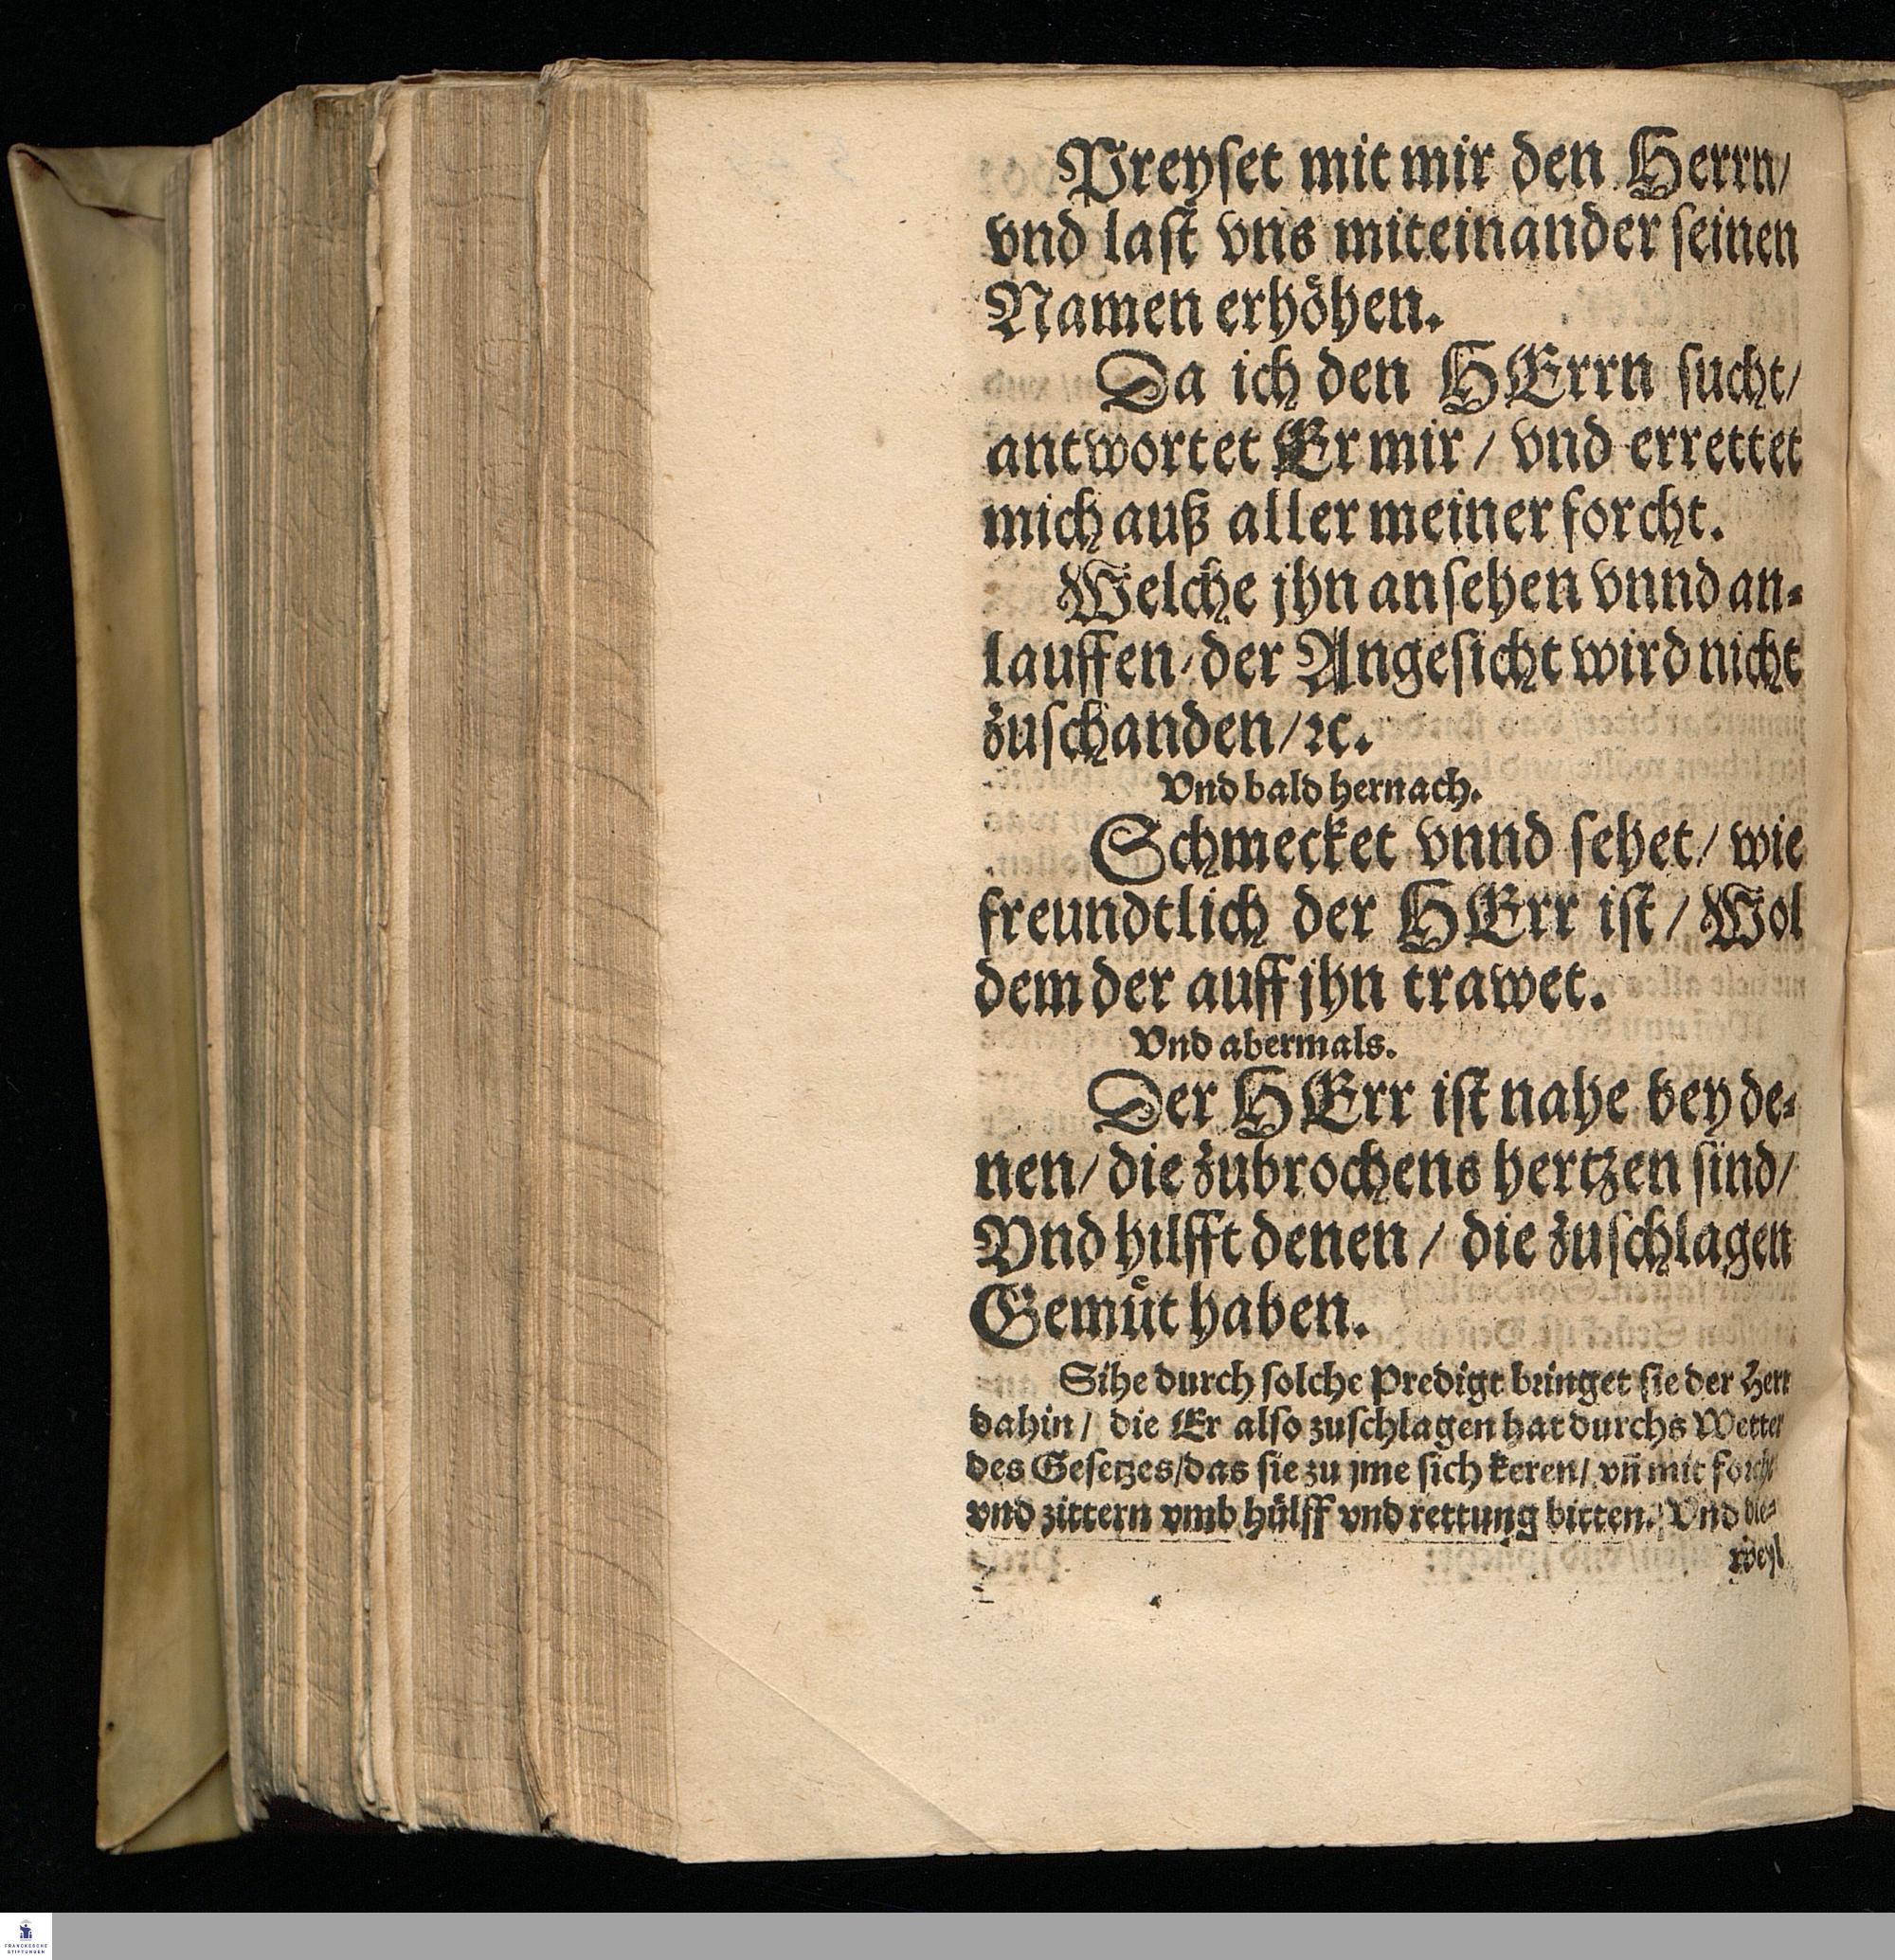 Preyſet mit mir den Herrn/
vnd laſt vns miteinander ſeinen
Namen erhöhen.
Da ich den HErrn ſucht/
antwortet Er mir / vnd errettet
mich auß aller meiner forcht.
Welche jhn anſehen vnnd an⸗
lauffen/ der Angeſicht wird nicht
zuſchanden/ ꝛc.
Vnd bald hernach.
Schmecket vnnd ſehet/ wie
freundtlich der HErr iſt / Wol
dem der auff jhn trawet.
Vnd abermals.
Der HErr iſt nahe bey de⸗
nen/ die zubrochens hertzen ſind/
Vnd hilfft denen / die zuſchlagen
Gemüt haben.
Sihe durch ſolche Predigt bringet ſie der Herr
dahin/ die Er alſo zuſchlagen hat durchs Wetter
des Geſetzes/das ſie zu jme ſich keren/ vn̄ mit forcht
vnd zittern vmb hülff vnd rettung bitten. Vnd die⸗
weyl
FRANCKESCHE
STIFTUNGEN